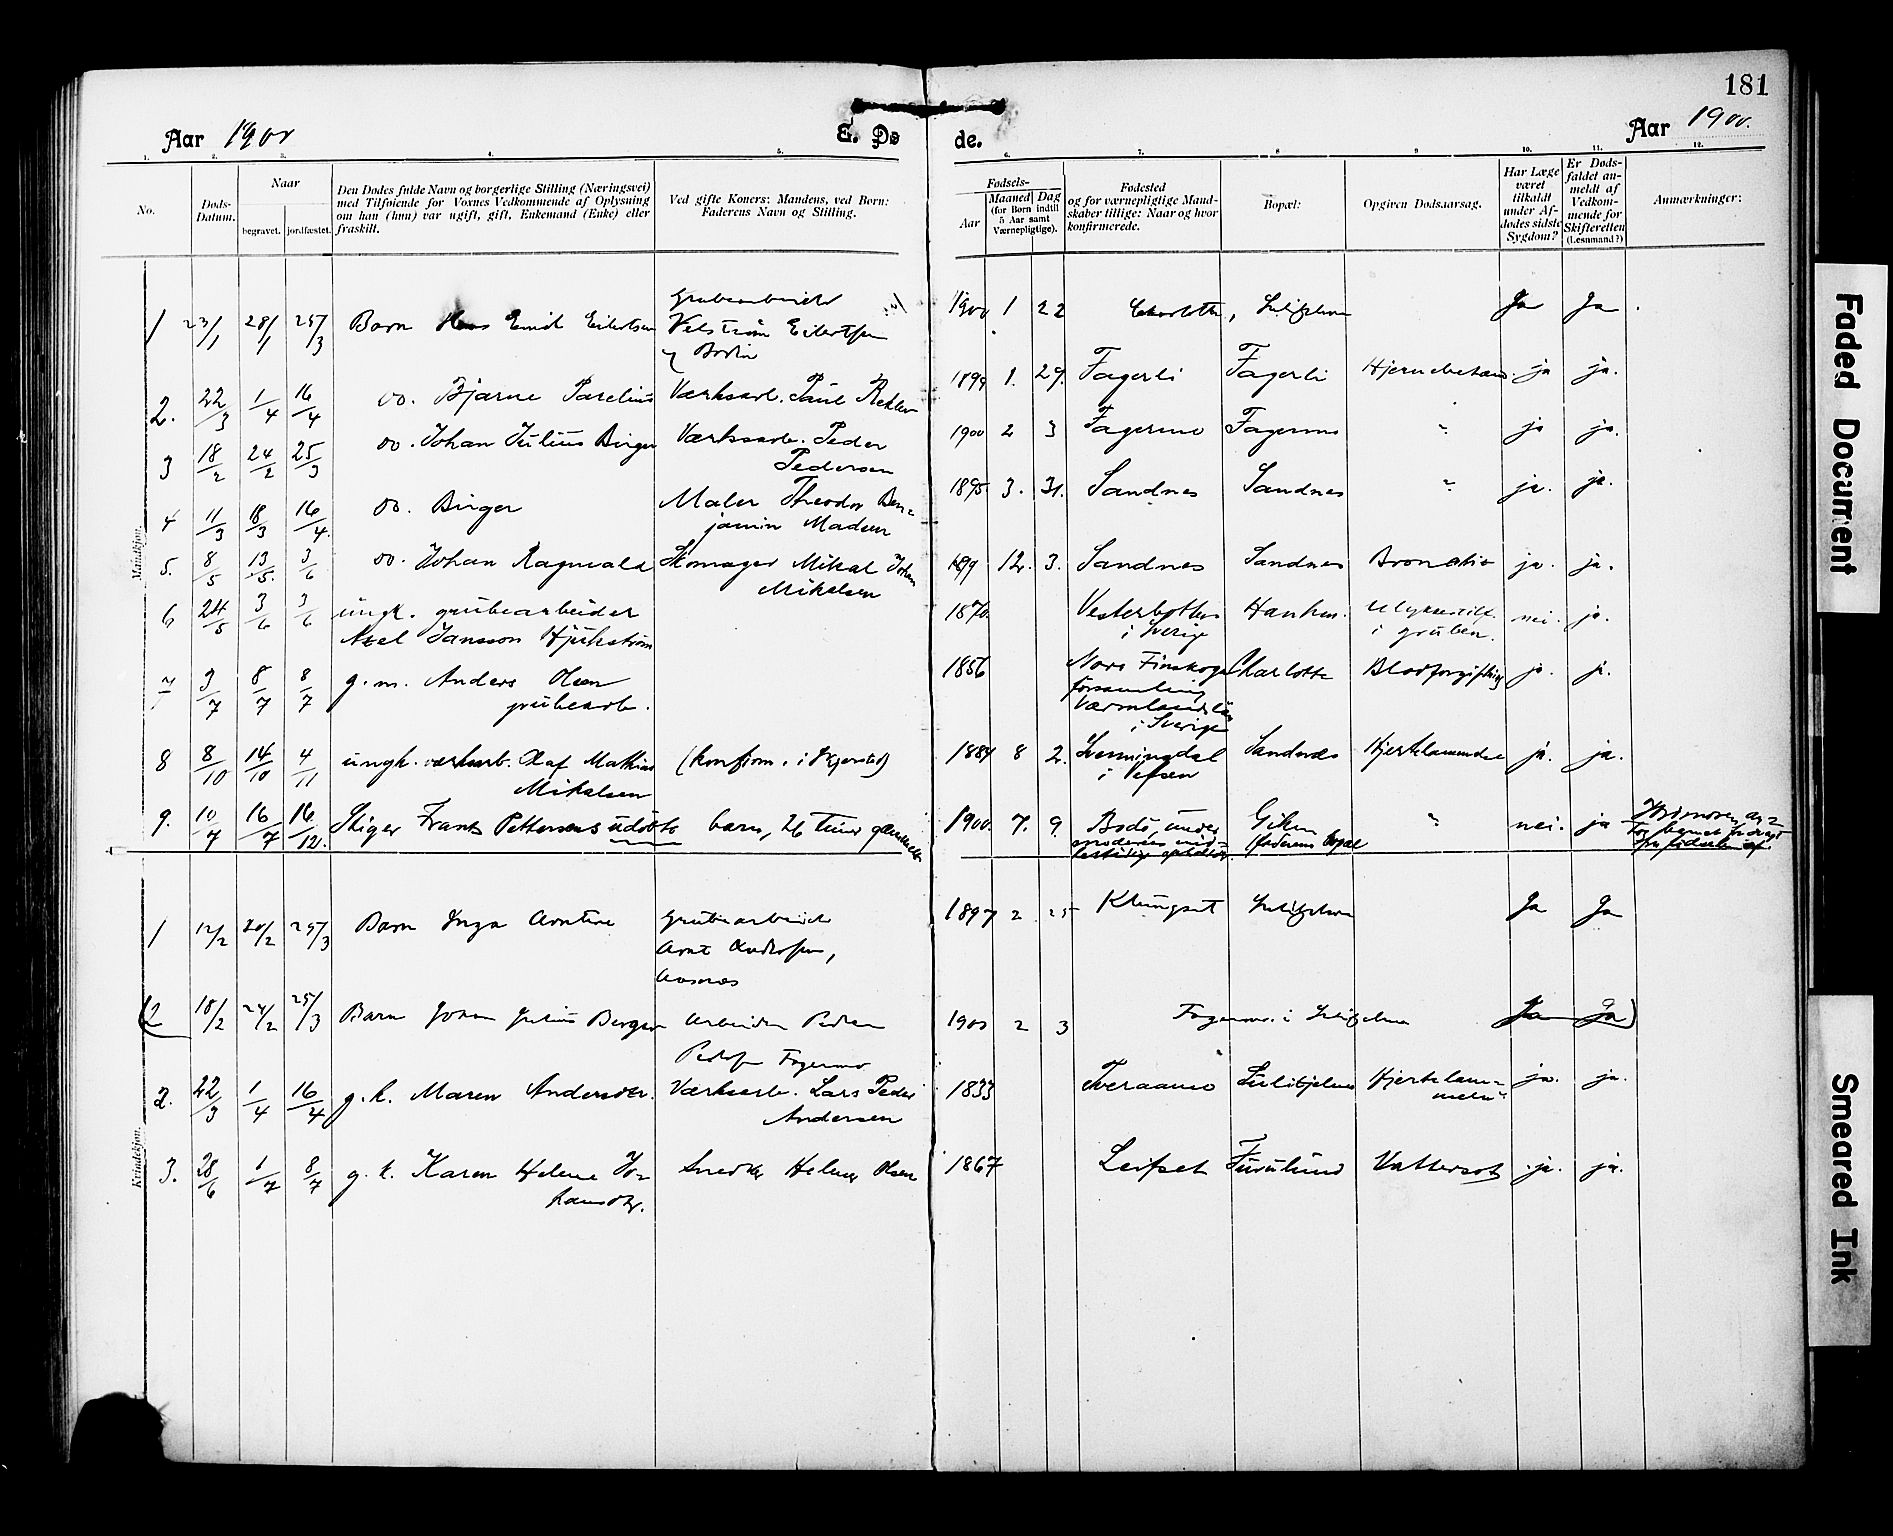 181
Aar 1900
E. Dø
de.
Aar 1900.
1. 2. 3. 4. 5. 6. 7. 8 9 10. 11. 12.
No.
Døds-
Datum.
Naar
begravet. jordfæstet.
Den Dødes fulde Navn og borgerlige Stilling (Næringsvei)
med Tilføiende for Voxnes Vedkommende af Oplysning
om han (hun) var ugift, gift, Enkemand (Enke) eller
fraskilt.
Ved gifte Koner: Mandens, ved Børn:
Faderens Navn og Stilling.
Fødsels-
Aar
Maaned Dag
(for Børn indtil
5 Aar samt
Værnepligtige).
Fødested
og for værnepligtige Mand-
skaber tillige: Naar og hvor
konfirmerede.
Bopæl:
Opgiven Dødsaarsag.
Har Læge
været
tilkaldt
under Af-
dødes sidste
Sygdom?
Er Døds-
faldet an-
meldt af
Vedkom-
mende for
Skifteretten
(Lesnmand?)
Anmærkninger:
Mandkjøn.
Grubearbeider
1 23/1 28/1 25/3 Barn Emil Eilertsen Eilertsen 1900 1 22 Charlotta, Sulitjelma Ja Ja
Bodin
2. 22/3 1/4 16/4 do. Bjarne Værksarb. Paul 1899 1. 29. Fagerli Fagerli ja ja.
3 18/2 24/2 25/3 do. Johan Julius Birger Værksarb. Peder 1900 2 3 Fagermo Fagermo " ja ja.
Pedersen
4 11/3 18/3 16/4. do. Birger Maler Theodor Ben= 1895 3. 31. Sandnes Sandnes " ja. ja.
jamin Madsen
5. 8/5 13/5. 3/6 do. Johan Ragnvald Skomager Mikal Johan 1899 12. 3. Sandnes Sandnes ja. ja.
Mikalsen
6 24/5 3/6 3/6 ungk. grubearbeider 1870. Vesterbotten Hanken. Ulykkestilf. nei. ja.
Axel Jansson i Sverige i gruben.
7 3/7 8/7 8/7 g.m. Anders Olsen 1856 Norra Finskoga Charlotta Blodforgiftning ja. ja.
grubearb. församling
Värmlands län
i Sverige
8 8/10 14/10 4/11 ungk. værksarb. Olaf Mathias (konfirm. i ) 1884 8 2. Svenningdal Sandnes Hjertelammelse ja. ja.
Mikalsen i Vefsen
9. 10/7 16/7 16/12. Stiger Frants Pettersens udøbte barn, 26 timer gammelt 1900. 7. 9. Bodø, under Giken " nei. ja
moderens mid= (faderens bopæl
lertidige ophold der.
1 12/2 20/2 25/3 Barn Inga Arntine Grubearbeider 1897 2 25 Klungset Sulitjelma Ja Ja
Arnt Andersen,
(2 18/2 24/2 25/3 Barn Johan Julius Berger Arbeider Peder 1900 2 3 Fagermo i Sulitjelma Ja Ja)
Fagermo
Kvindekjøn.
2. 22/3 1/4 16/4 g.k. Maren Andersdtr. Værksarb. Lars Peder 1833 Tveraamo Sulitjelma Hjertelam= ja. ja.
Andersen melse
3. 28/6 1/7 8/7 g.k. Karen Helene Jo= Snedker Helmer Olsen 1867 Leifset Furulund Vattersot ja. ja.
hansdtr.
Faded Document
Smeared Ink